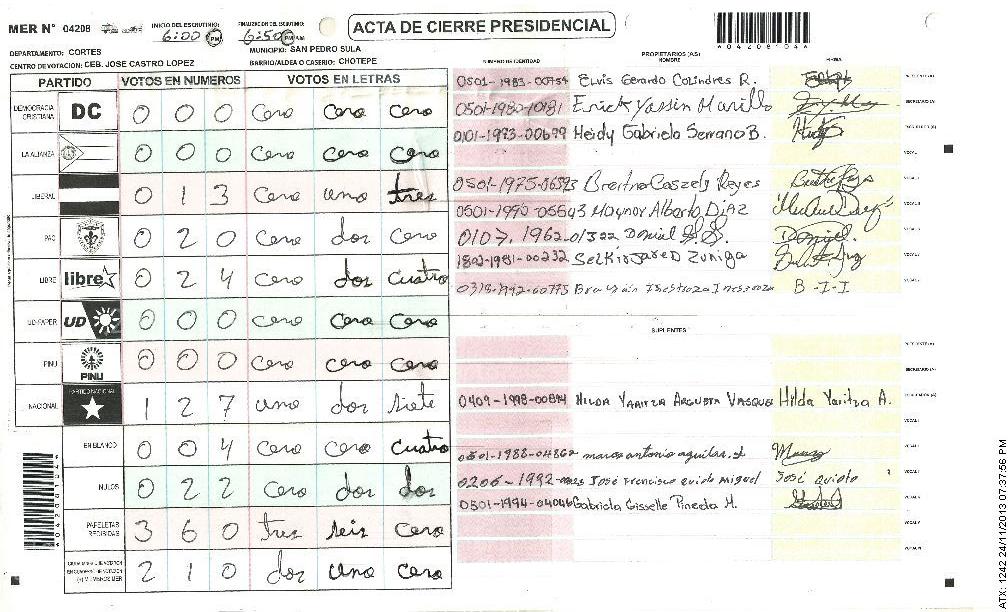 MER N° 04208
INICIO DEL ESCRUTINIO: 6:00 PM
FINALIZACION DEL ESCRUTINIO: 6:50 PM
ACTA DE CIERRE PRESIDENCIAL
A04208104A
DEPARTAMENTO: CORTES
MUNICIPIO: SAN PEDRO SULA
CENTRO DE VOTACION: CEB. JOSE CASTRO LOPEZ
BARRIO/ALDEA O CASERIO: CHOTEPE
PARTIDO VOTOS EN NUMEROS VOTOS EN LETRAS
DEMOCRACIA CRISTIANA DC 0 0 0 Cero Cero Cero
LA ALIANZA 0 0 0 Cero Cero Cero
LIBERAL 0 1 3 Cero uno tres
PAC 0 2 0 Cero dos Cero
LIBRE libre 0 2 4 Cero dos Cuatro
UD-FAPER UD 0 0 0 Cero Cero Cero
PINU PINU 0 0 0 Cero Cero Cero
NACIONAL PARTIDO NACIONAL 1 2 7 uno dos siete
EN BLANCO 0 0 4 Cero Cero Cuatro
NULOS 0 2 2 Cero dos dos
PAPELETAS RECIBIDAS 3 6 0 tres seis Cero
2 1 0 dos uno Cero
NUMERO DE IDENTIDAD
PROPIETARIOS (AS)
NOMBRE
FIRMA
Elvis Gerardo Colindres R.
PRESIDENTE (A)
0501-1980-10181 Erick Yassin Murillo
SECRETARIO (A)
0101-1973-00699 Heidy Gabriela Serrano B.
Reyes
0501-1990-05643 Maynor Alberto Diaz
Daniel
1802-1981-00232 Selkin Jared Zuniga
B-I-I
SUPLENTES
PRESIDENTE (A)
SECRETARIO (A)
HILDA YARITZA ARGUETA VASQUEZ Hilda Yaritza A.
0501-1988-04862 marco antonio aguilar
José Francisco Miguel José
0501-1994-04046 Gabriela Gisselle Pineda M.
ATX: 1242 24/11/2013 07:37:56 PM